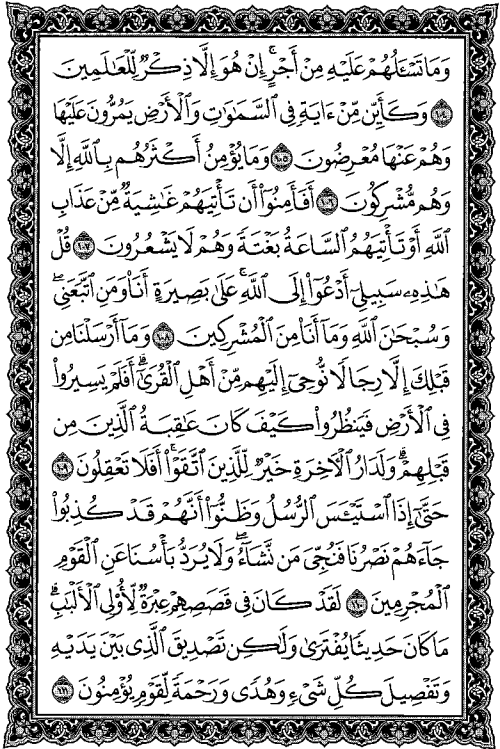 وَمَا تَسْـَٔلُهُمْ عَلَيْهِ مِنْ أَجْرٍ ۚ إِنْ هُوَ إِلَّا ذِكْرٌ لِّلْعَـٰلَمِينَ
١٠٤ وَكَأَيِّن مِّنْ ءَايَةٍ فِى ٱلسَّمَـٰوَٰتِ وَٱلْأَرْضِ يَمُرُّونَ عَلَيْهَا
وَهُمْ عَنْهَا مُعْرِضُونَ ١٠٥ وَمَا يُؤْمِنُ أَكْثَرُهُم بِٱللَّهِ إِلَّا
وَهُم مُّشْرِكُونَ ١٠٦ أَفَأَمِنُوٓا۟ أَن تَأْتِيَهُمْ غَـٰشِيَةٌ مِّنْ عَذَابِ
ٱللَّهِ أَوْ تَأْتِيَهُمُ ٱلسَّاعَةُ بَغْتَةً وَهُمْ لَا يَشْعُرُونَ ١٠٧ قُلْ
هَـٰذِهِۦ سَبِيلِىٓ أَدْعُوٓا۟ إِلَى ٱللَّهِ ۚ عَلَىٰ بَصِيرَةٍ أَنَا۠ وَمَنِ ٱتَّبَعَنِى ۖ
وَسُبْحَـٰنَ ٱللَّهِ وَمَآ أَنَا۠ مِنَ ٱلْمُشْرِكِينَ ١٠٨ وَمَآ أَرْسَلْنَا مِن
قَبْلِكَ إِلَّا رِجَالًا نُّوحِىٓ إِلَيْهِم مِّنْ أَهْلِ ٱلْقُرَىٰٓ ۗ أَفَلَمْ يَسِيرُوا۟
فِى ٱلْأَرْضِ فَيَنظُرُوا۟ كَيْفَ كَانَ عَـٰقِبَةُ ٱلَّذِينَ مِن
قَبْلِهِمْ ۗ وَلَدَارُ ٱلْـَٔاخِرَةِ خَيْرٌ لِّلَّذِينَ ٱتَّقَوْا۟ ۗ أَفَلَا تَعْقِلُونَ ١٠٩
حَتَّىٰٓ إِذَا ٱسْتَيْـَٔسَ ٱلرُّسُلُ وَظَنُّوٓا۟ أَنَّهُمْ قَدْ كُذِبُوا۟
جَآءَهُمْ نَصْرُنَا فَنُجِّىَ مَن نَّشَآءُ ۖ وَلَا يُرَدُّ بَأْسُنَا عَنِ ٱلْقَوْمِ
ٱلْمُجْرِمِينَ ١١٠ لَقَدْ كَانَ فِى قَصَصِهِمْ عِبْرَةٌ لِّأُو۟لِى ٱلْأَلْبَـٰبِ ۗ
مَا كَانَ حَدِيثًا يُفْتَرَىٰ وَلَـٰكِن تَصْدِيقَ ٱلَّذِى بَيْنَ يَدَيْهِ
وَتَفْصِيلَ كُلِّ شَىْءٍ وَهُدًى وَرَحْمَةً لِّقَوْمٍ يُؤْمِنُونَ ١١١